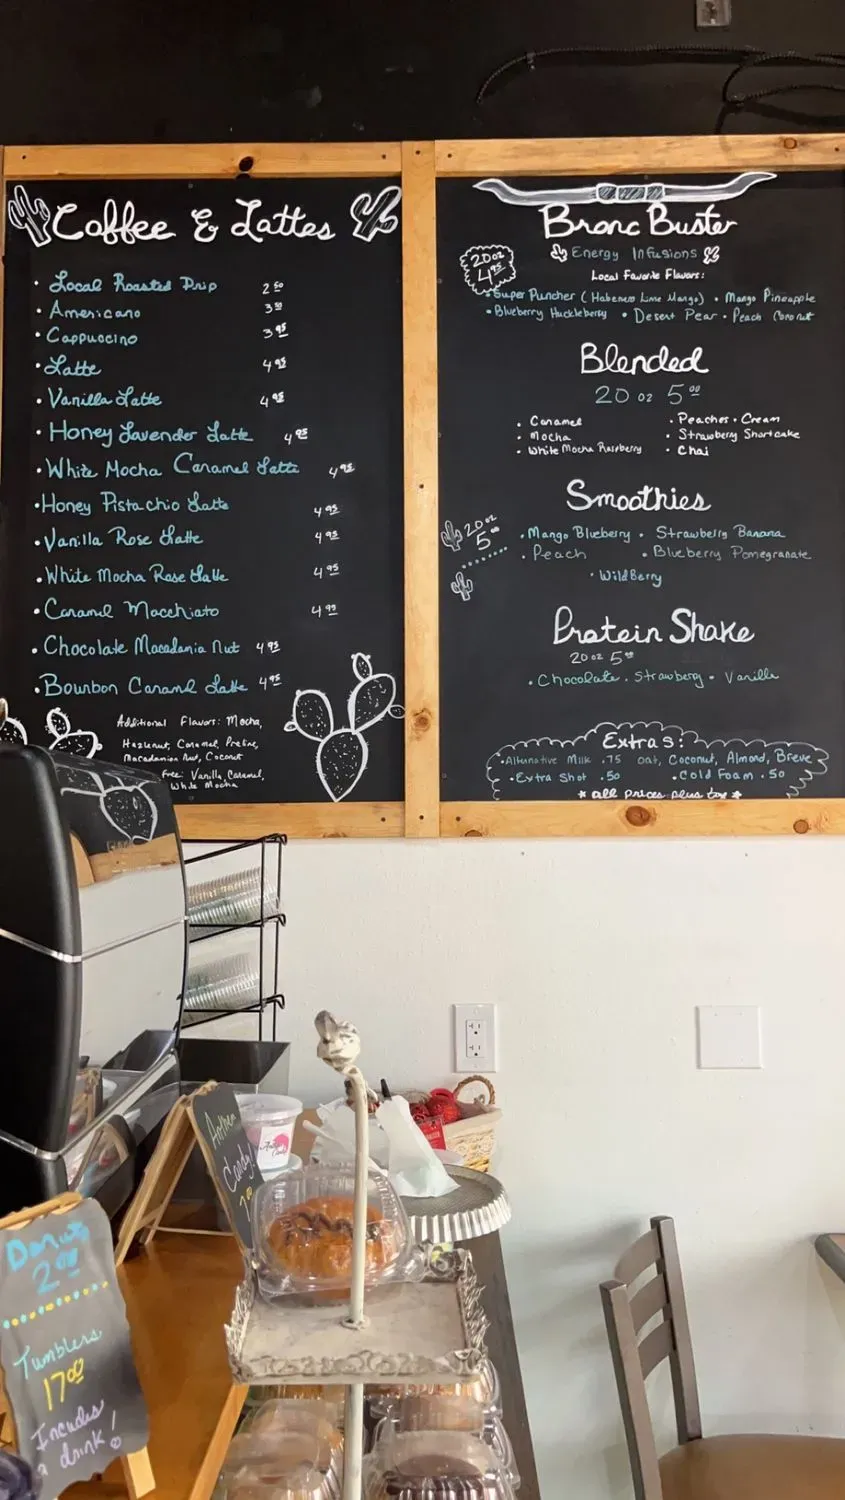 Coffee & Lattes
• Local Roasted Drip 2 50
• Americano 3 50
• Cappuccino 3 95
• Latte 4 95
• Vanilla Latte 4 95
• Honey Lavender Latte 4 95
• White Mocha Caramel Latte 4 95
• Honey Pistachio Latte 4 95
• Vanilla Rose Latte 4 95
• White Mocha Rose Latte 4 95
• Caramel Macchiato 4 95
• Chocolate Macadamia Nut 4 95
• Bourbon Caramel Latte 4 95
Additional Flavors: Mocha,
Hazlenut, Caramel, Praline,
Macadamian Nut, Coconut
Free: Vanilla, Caramel,
White Mocha
Bronc Buster
Energy Infusions
20 oz
4 95
Local Favorite Flavors:
• Super Puncher (Habanero Lime Mango) • Mango Pineapple
• Blueberry Huckleberry • Desert Pear • Peach Coconut
Blended
20 oz 5 00
• Caramel • Peaches + Cream
• Mocha • Strawberry Shortcake
• White Mocha Raspberry • Chai
Smoothies
20 oz
5 00
• Mango Blueberry • Strawberry Banana
• Peach • Blueberry Pomegranate
• WildBerry
Protein Shake
20 oz 5 00
• Chocolate • Strawberry • Vanilla
Extras:
• Alternative Milk .75 Oat, Coconut, Almond, Breve
• Extra Shot .50 • Cold Foam .50
* all prices plus tax *
Cotton
Candy!
7.00
Donuts
2.00
Tumblers
17 00
Includes
a drink!